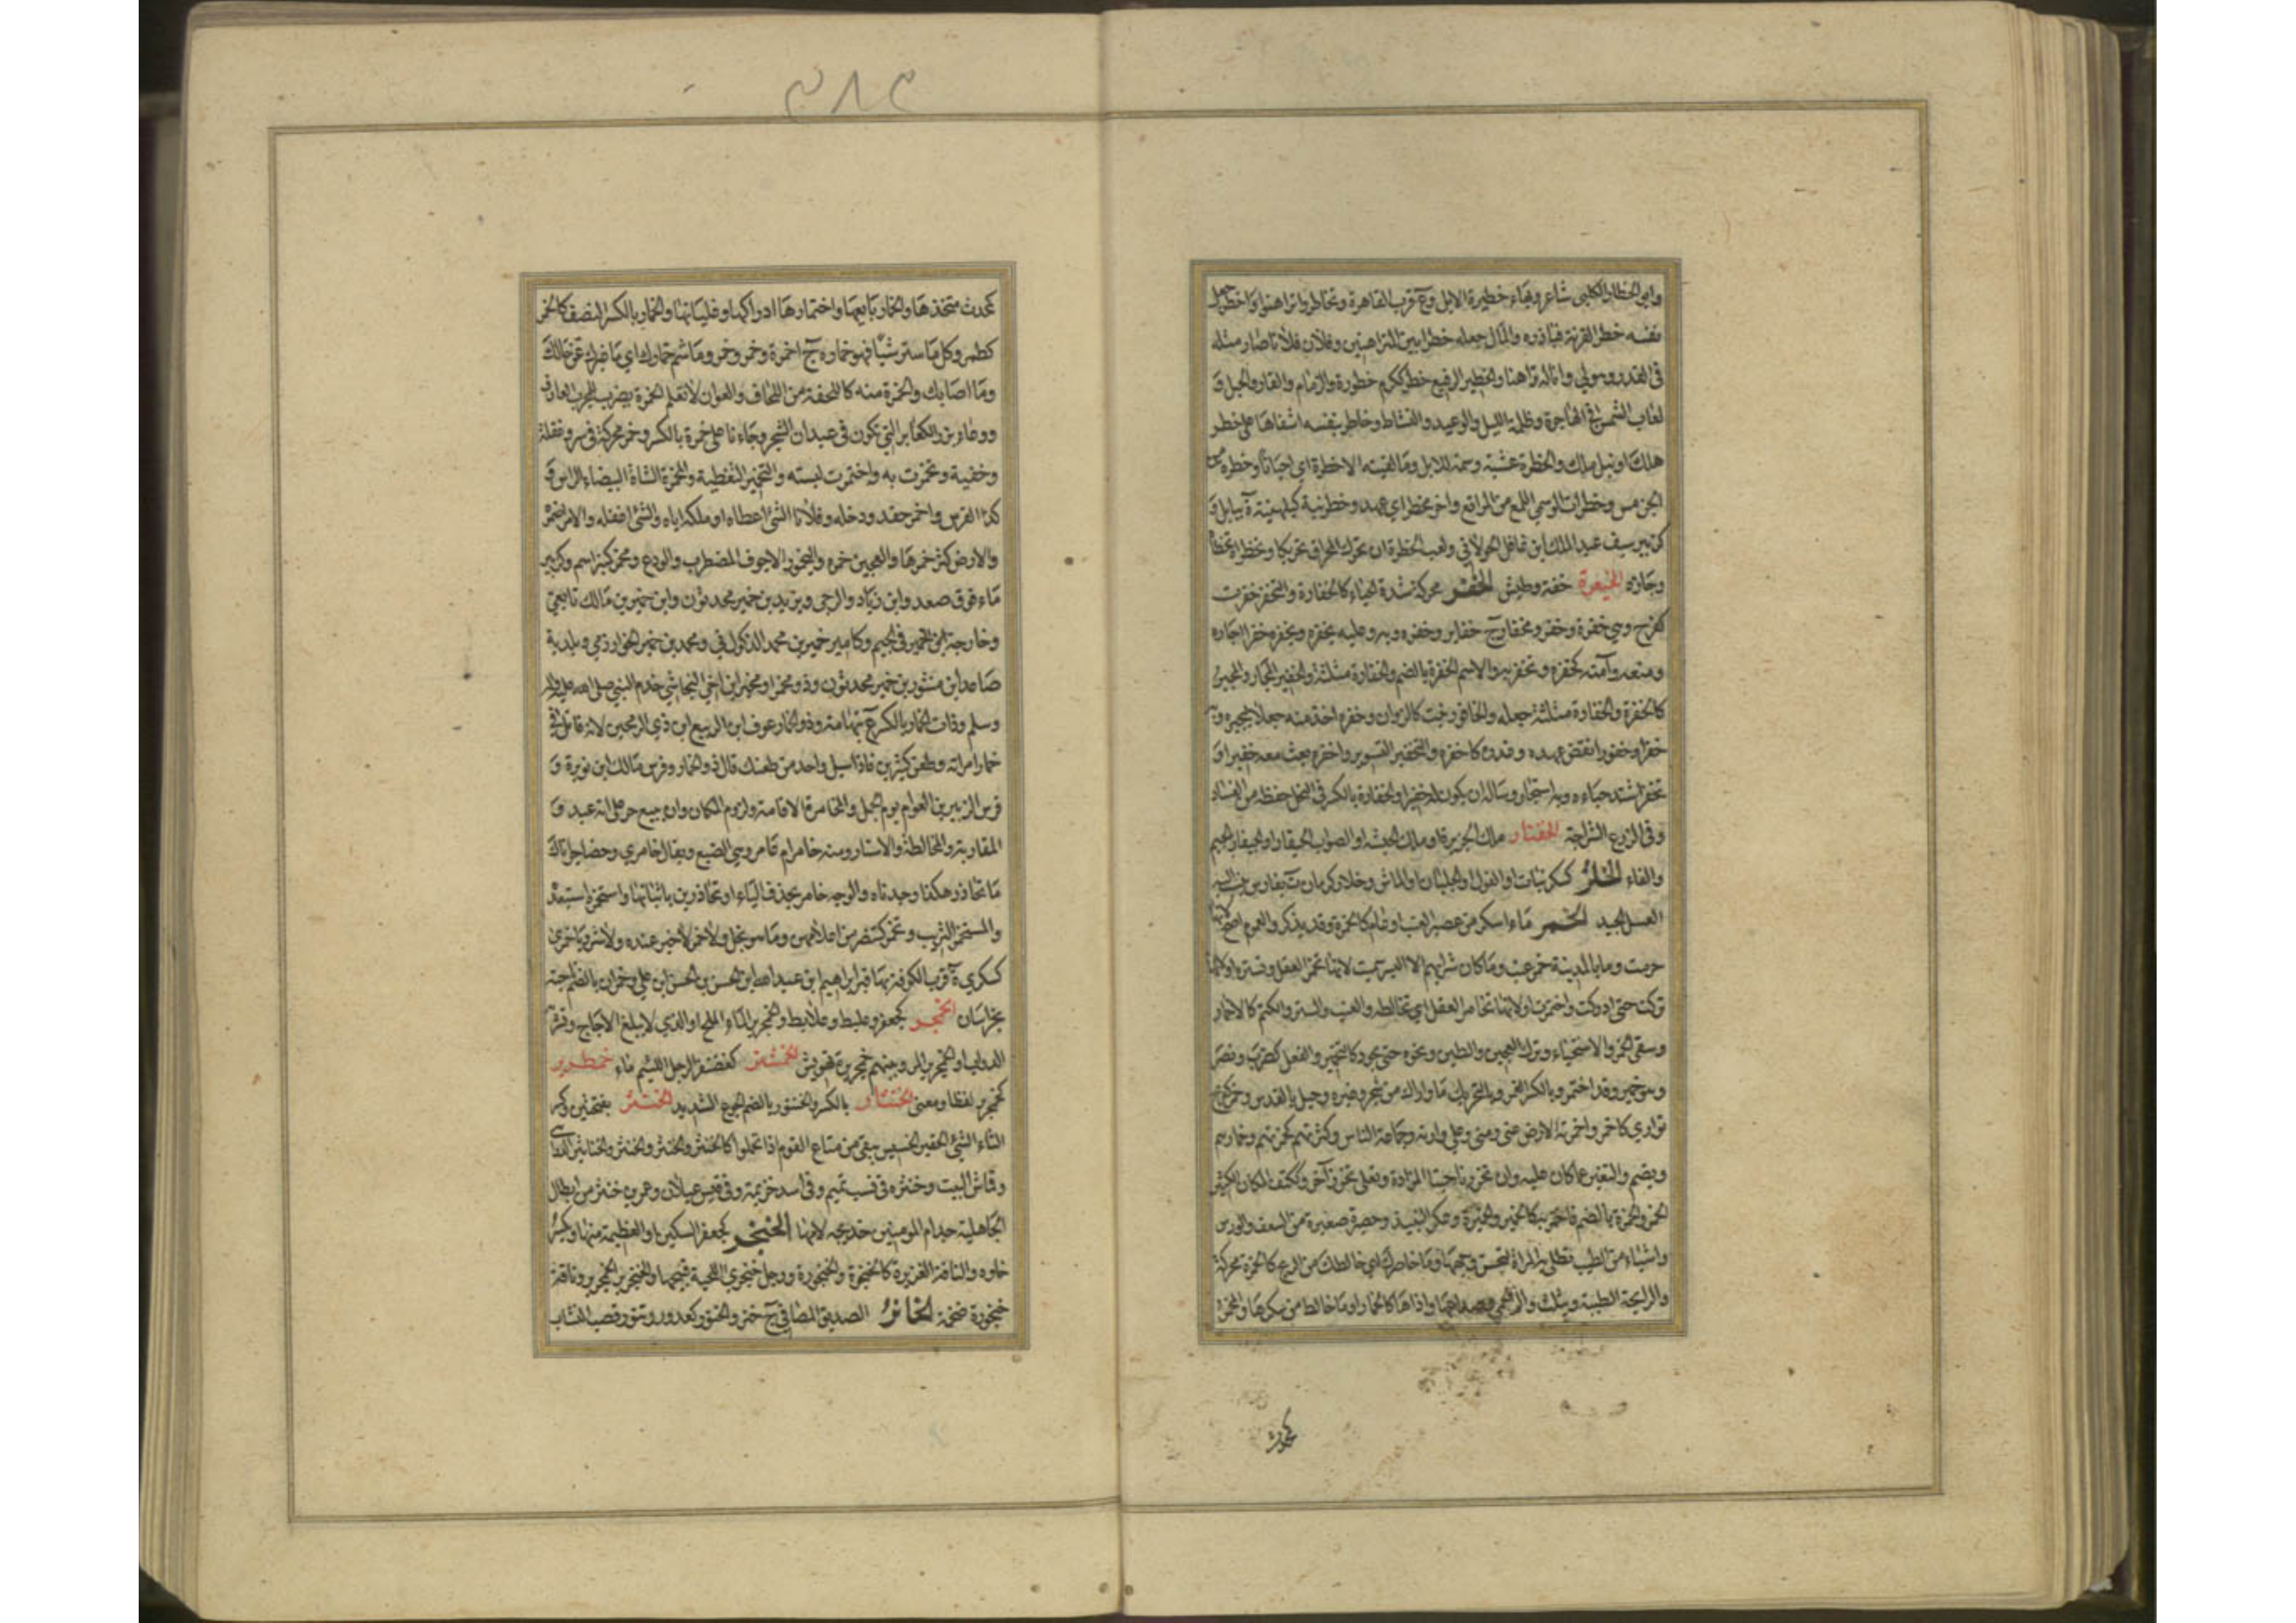 وابي الخطار الكلبي شاعر وبهاء خطيرة الابل وع قرب القاهرة وتخاطروا تراهنوا واخطر جعل
نفسه خطرا لقرنه فبارزه والمال جعله خطرا بين المتراهنين وفلان فلانا صار مثله
في القدر وهو لي وانا له تراهنا والخطير الرفيع خطر ككرم خطورة والزمام والقار والحبل و
لعاب الشمس في الهاجرة وظلمة الليل والوعيد والنشاط وخاطر بنفسه اشفاها على خطر
هلك او نيل ملك والخطرة عشبة وسمة للابل وما لقيته الا خطرة اي احيانا وخطرة من
الجن مس وخطرات الوسمي اللمع من المراتع واخر مخطر اي عهد وخطرنية كبلهنية ة ببابل و
كزبير سيف عبد الملك ابن غافل الخولاني ولعب الخطرة ان يحرك المخراق تحريكا وتخطراه تخطاه
وجازه الخيعرة خفة وطيش الخفر محركة شدة الحياء كالخفارة والتخفر خفرت
كفرح وهي خفرة وخفر ومخفار ج خفاير وخفره وبه وعليه يخفره ويخفره خفرا اجاره
ومنعه وآمنه كخفره وتخفر به والاسم الخفرة بالضم والخفارة مثلثة والخفير المجار والمجير
كالخفرة والخفارة مثلثة جعله والخافور نبت كالزوان وخفره اخذ منه جعلا ليجيره وبه
خفرا وخفورا نقض عهده وغدره كاخفره والتخفير التسوير واخفره بعث معه خفيرا و
تخفر اشتد حياءه وبه استجار وساله ان يكون له خفيرا والخفارة بالكسر في النخل حفظه من الفساد
وفي الزرع الشراجة الخفتار ملك الجزيرة او ملك الحبشة او الصواب الحيقار او الجيفار بالجيم
والفاء الخلر كسكر نبات او الفول او الجلبان او الماش وخلار كرمان ع بفارس ينسب اليه
العسل الجيد الخمر ماء اسكر من عصير العنب او عام كالخمرة وقد يذكر والعموم اصح لانها
حرمت وما بالمدينة خمر عنب وما كان شرابهم الا البسر سميت لانها تخمر العقل وتستره او لانها
تركت حتى ادركت واختمرت او لانها تخامر العقل اي تخالطه والعنب والستر والكتم كالاخمار
وسقي الخمر والاستحياء وترك العجين والطين ونحوه حتى يجود كالتخمير والفعل كضرب ونصر
وهو خمير وقد اختمر وبالكسر الغمر وبالتحريك ما واراك من شجر وغيره وجبل بالقدس وخمر كفرح
تواري كاخمر واخمرته الارض عني ومني وعلي وارته وجماعة الناس وكثرتهم كخمرتهم وخمارهم
ويضم والتغير عما كان عليه وان تخرز ناحيتا المزادة وتعلى بخرز آخر وككتف المكان الكثير
الخمر والخمرة بالضم ما خمر فيه كالخمير والخميرة وعكر النبيذ وحصيرة صغيرة من السعف والورس
واشياء من الطيب تطلي به المراة لتحسن وجهها وما خامرك اي خالطك من الريح كالخمرة محركة
والرايحة الطيبة ويثلث والم الخمر وصداعها واذاها كالخمار او ما خالط من سكرها والمخمر
محدث
٣٨٣
كمحدث متخذها والخمار بايعها واختمارها ادراكها وغليانها والخمار بالكسر النصف كالخمر
كطمر وكل ما ستر شيئا فهو خماره ج اخمرة وخمر وخمر وما شم خمارك اي ما غيرك عن حالك
وما اصابك والخمرة منه كاللحفة من اللحاف والعوان لا تعلم الخمرة يضرب للمجرب العارف
ووعاء بزر الكعابر التي تكون في عيدان الشجر وجاءنا على خمرة بالكسر وخمر محركة في سر وغفلة
وخفية وتخمرت به واختمرت لبسته والتخمير التغطية والمخمرة الشاة البيضاء الراس و
كذا الفرس واخمر حقد وذحله وفلانا الشئ اعطاه او ملكه اياه والشئ اغفله والامر اضمره
والارض كثر خمرها والعجين خمره واليخمور الاجوف المضطرب والودع ومخمر كمنبر اسم وكزبير
ماء فوق صعدة وابن زياد والرحبي ويزيد بن خمير محدثون وابن خمير بن مالك تابعي
وخارجة بن الخمير في الجيم وكامير خمير بن محمد الذكواني ومحمد بن خمير الخوارزمي وبلدية
صاعد ابن منثور بن خمير محدثون وذو مخمر او مخبر ابن اخي النجاشي خدم النبي صلى الله عليه واله
وسلم وذات الخمار بالكسر ع بتهامة وذو الخمار عوف ابن الربيع ابن ذي الرمحين لانه قاتل في
خمار امراته وطعن كثيرين فاذا سيل واحد من طعنك قال ذو الخمار وفرس مالك ابن نويرة و
فرس الزبير بن العوام يوم الجمل والمخامرة الاقامة ولزوم المكان وان يبيع حرا على انه عبد و
المقاربة والمخالطة والاستتار ومنه خامر ام عامر وهي الضبع ويقال خامري حضاجر اتاك
ما تحاذر هكذا وجدناه والوجه خامر بحذف الياء او تحاذرين باثباتها واستخمره استعبده
والمستخمر الشريب وتخمر كتنصر من اعلامهن وما هو بخل ولا خمر لا خير عنده ولا شر وباخمرى
كسكرى ة قرب الكوفة بها قبر ابراهيم ابن عبد الله ابن الحسن بن الحسن ابن علي وخمران بالضم ناحية
بخراسان الخمجر كجعفر وعلبط وعلابط والخمجرير الماء الملح او الذي لا يبلغ الاجاج وتشربه
الدواب او الخمجرير المر وبينهم خمجريرة تهويش الخمشتر كغضنفر الرجل اللئيم ماء خمطرير
كخمجرير لفظا ومعنى الخنتار بالكسر والخنتور بالضم الجوع الشديد الخنثر بفتحتين وكسر
الثاء الشئ الحقير الخسيس يبقى من متاع القوم اذا تحملوا كالخنثر والخنثر والخنثر والخناثير الدواهي
وقماش البيت وخنثره في نسب تميم وفي اسد خزيمة وفي قيس عيلان وعمر بن خنثر من ابطال
الجاهلية جد ام المومنين خديجة لامها الخنجر كجعفر السكين او العظيمة منها وتكسر
خاوه والناقة الغزيرة كالخنجرة والخنجورة ورجل خنجري اللحية قبيحها والخنجرير الخمجرير وناقة
خنجورة ضخمة الخانر الصديق المصافي ج خنر والخنور كعذور وتنور قصب النشاب